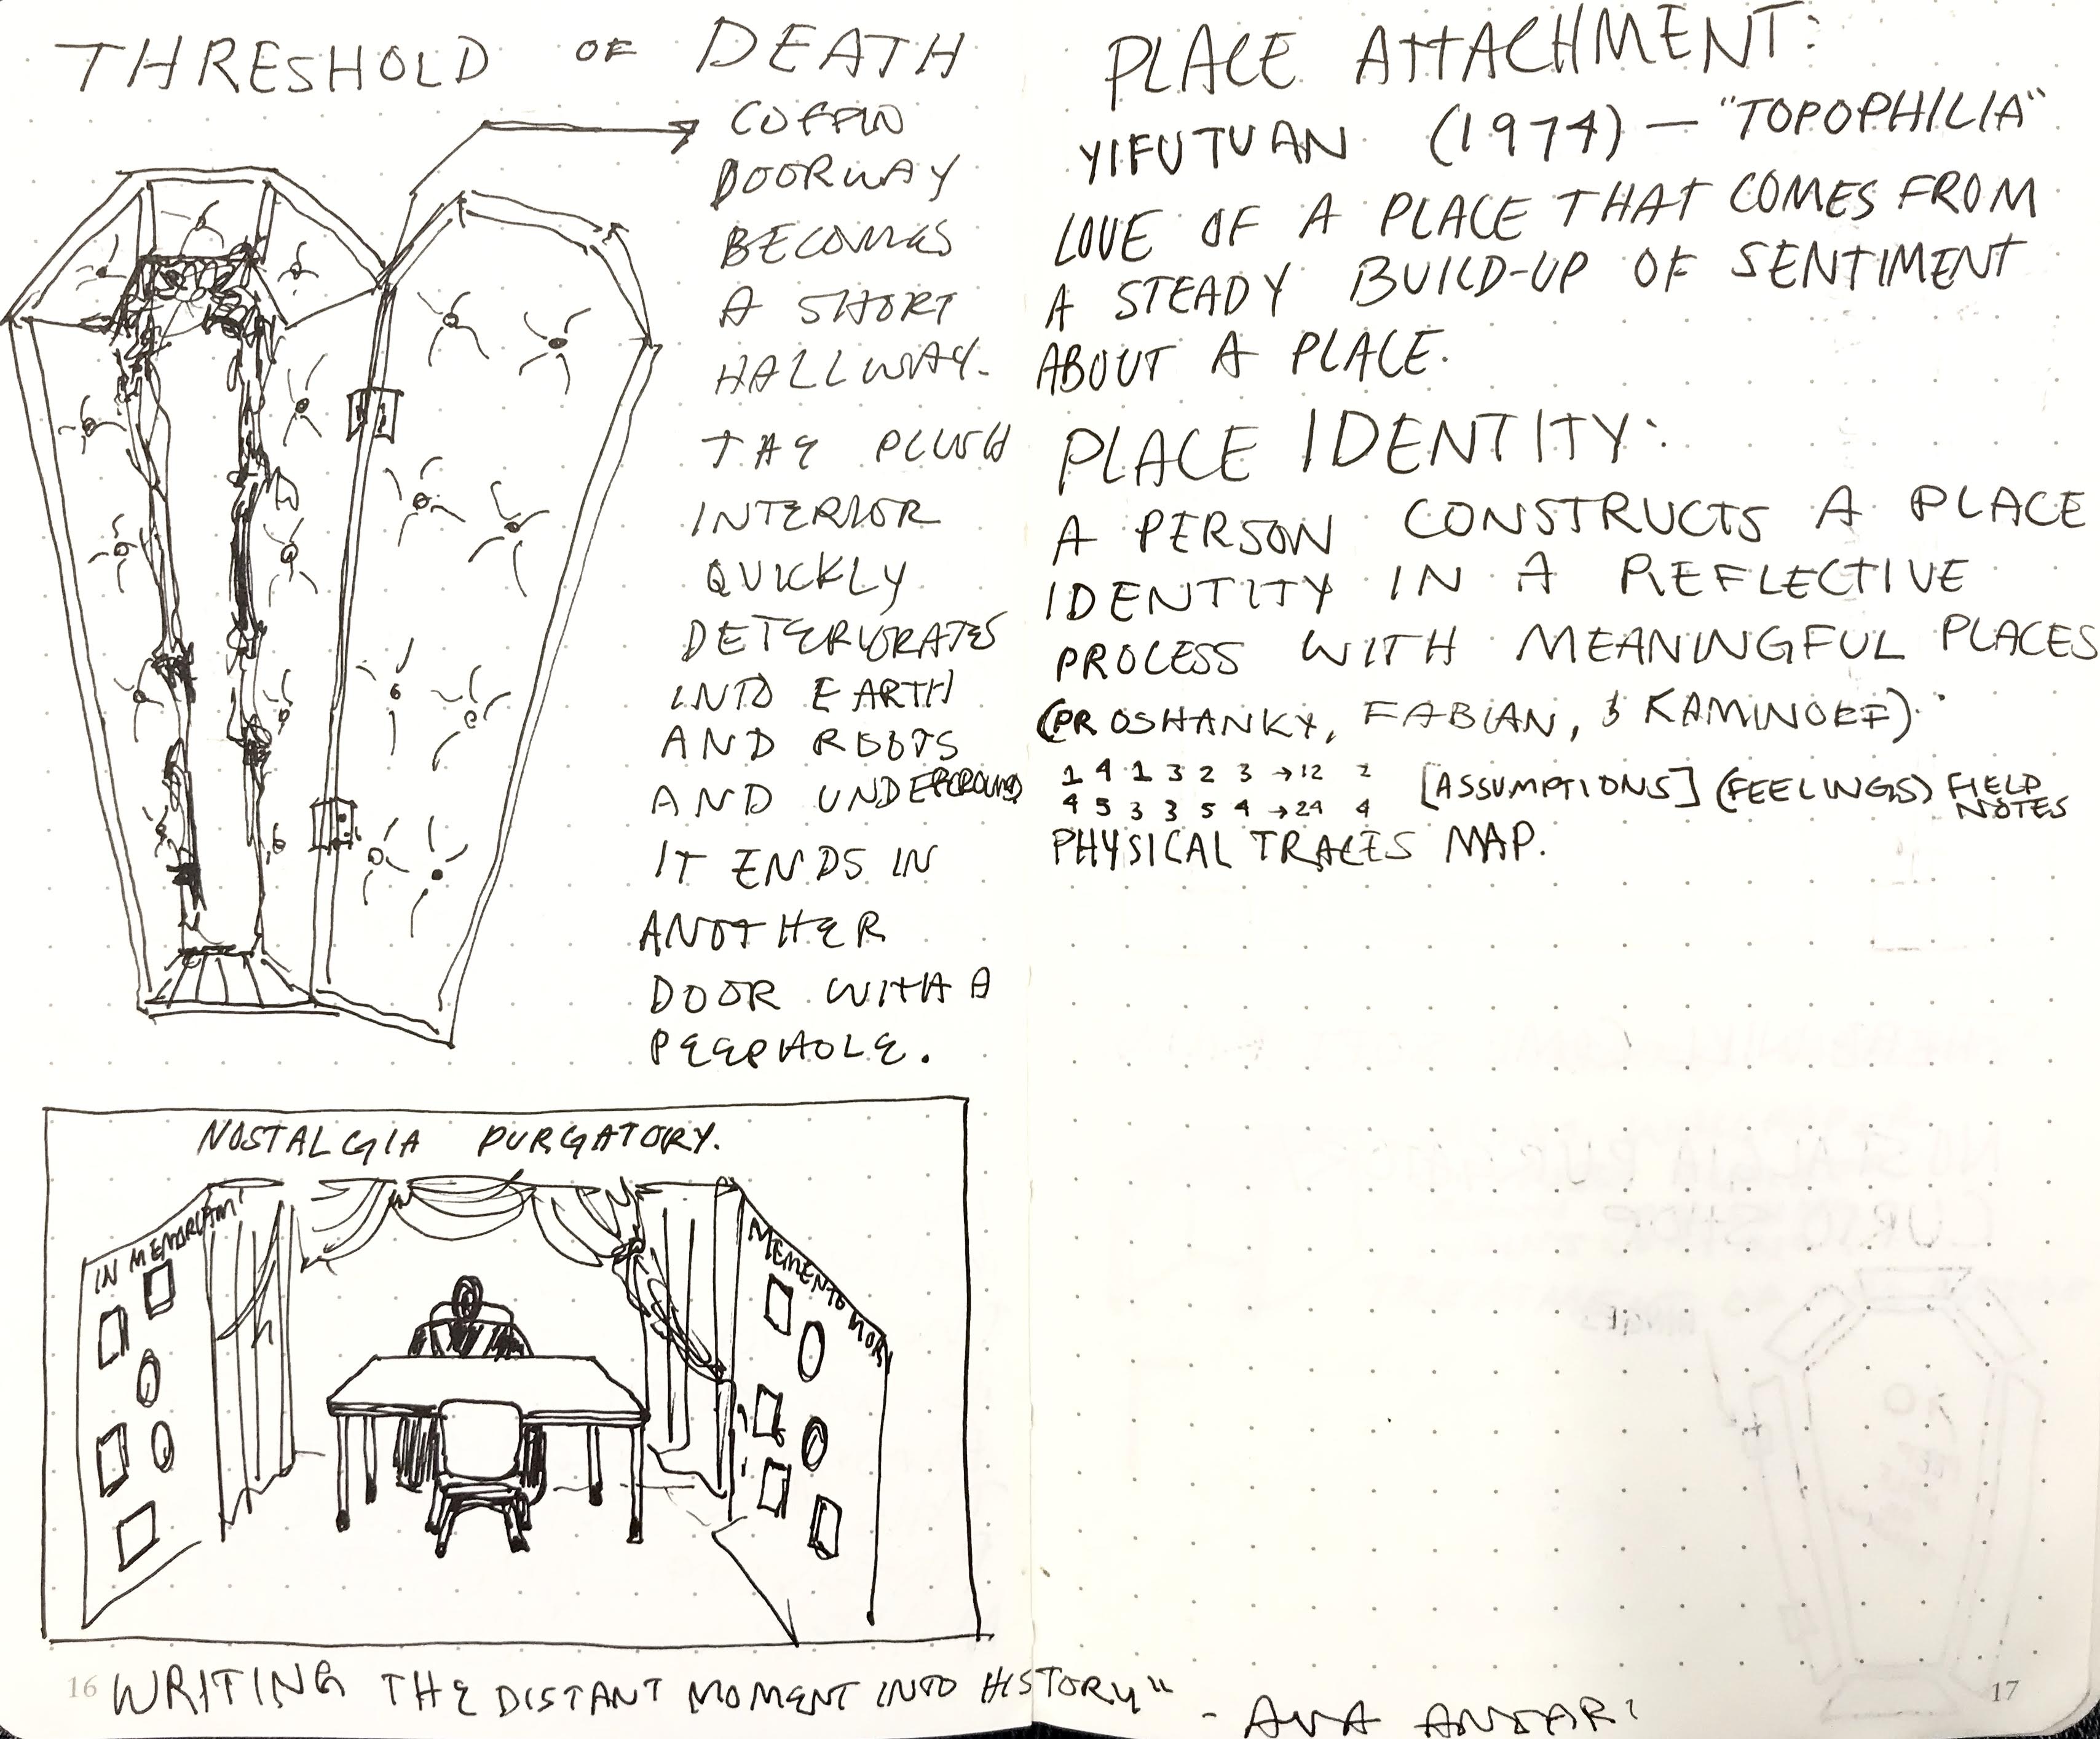 THRESHOLD OF DEATH
COFFIN
DOORWAY
BECOMES
A SHORT
HALLWAY.
THE PLUSH
INTERIOR
QUICKLY
DETERIORATES
INTO EARTH
AND ROOTS
AND UNDERGROUND
IT ENDS IN
ANOTHER
DOOR WITH A
PEEPHOLE.
NOSTALGIA PURGATORY.
IN MEMORIAM
MEMENTO MORI
16 WRITING THE DISTANT MOMENT INTO HISTORY"
- AVA ANSARI
PLACE ATTACHMENT:
YIFUTUAN (1974) — "TOPOPHILIA"
LOVE OF A PLACE THAT COMES FROM
A STEADY BUILD-UP OF SENTIMENT
ABOUT A PLACE.
PLACE IDENTITY:
A PERSON CONSTRUCTS A PLACE
IDENTITY IN A REFLECTIVE
PROCESS WITH MEANINGFUL PLACES
(PROSHANKY, FABIAN, & KAMINOFF).
1 4 1 3 2 3 →12 2
4 5 3 3 5 4 →24 4
[ASSUMPTIONS] (FEELINGS) FIELD NOTES
PHYSICAL TRACES MAP.
17